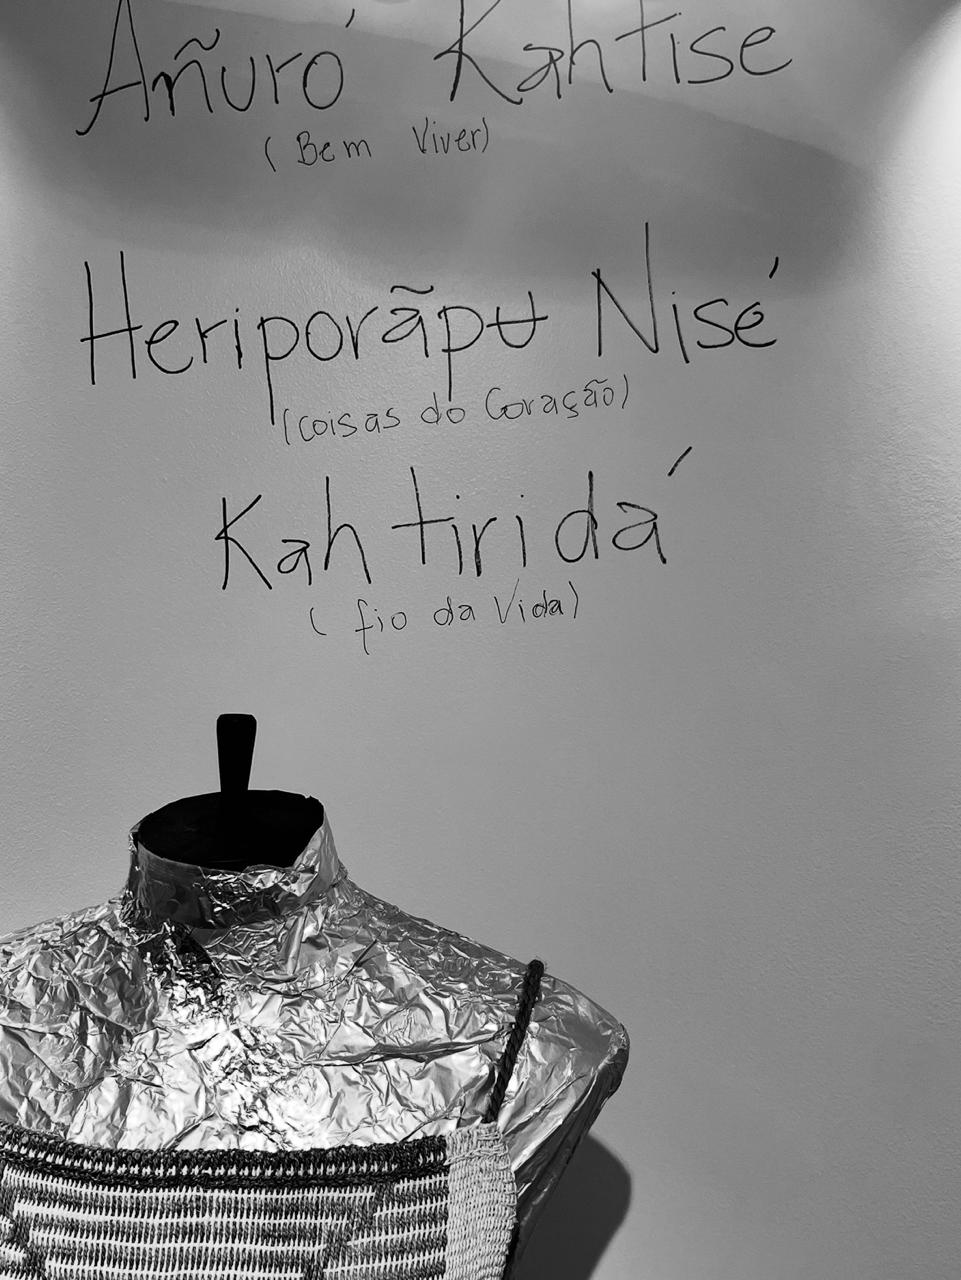 Añuró Kahtise
(Bem Viver)
Heriporãpʉ Nisé
(Coisas do Coração)
Kahtiridá
(fio da Vida)